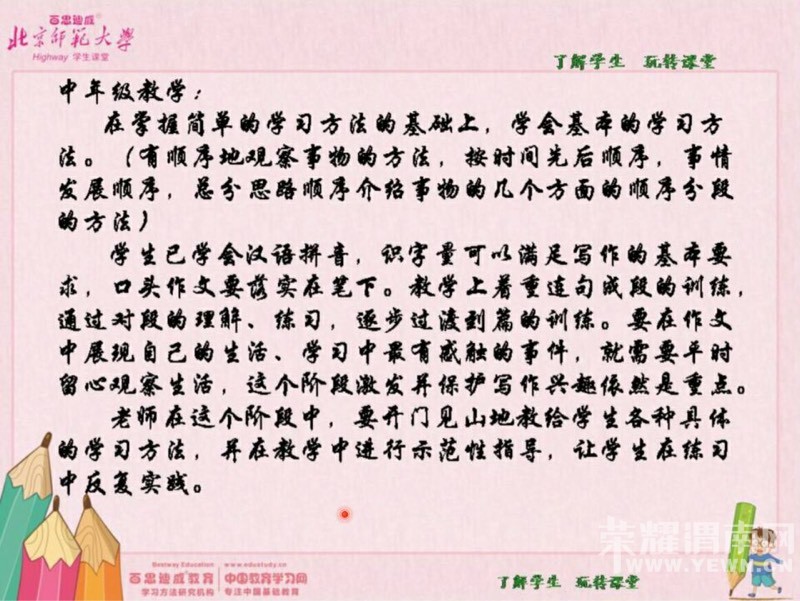 百思迪威®
北京师范大学
Highway 学生课堂
了解学生 玩转课堂
中年级教学：
在掌握简单的学习方法的基础上，学会基本的学习方
法。（有顺序地观察事物的方法，按时间先后顺序，事情
发展顺序，总分思路顺序介绍事物的几个方面的顺序分段
的方法）
学生已学会汉语拼音，识字量可以满足写作的基本要
求，口头作文要落实在笔下。教学上着重连句成段的训练，
通过对段的理解、练习，逐步过渡到篇的训练。要在作文
中展现自己的生活、学习中最有感触的事件，就需要平时
留心观察生活，这个阶段激发并保护写作兴趣依然是重点。
老师在这个阶段中，要开门见山地教给学生各种具体
的学习方法，并在教学中进行示范性指导，让学生在练习
中反复实践。
Bestway Education
百思迪威教育
学习方法研究机构
www.edustudy.cn
中国教育学习网
专注中国基础教育
了解学生 玩转课堂
荣耀渭南网
WWW.YEWN.CN